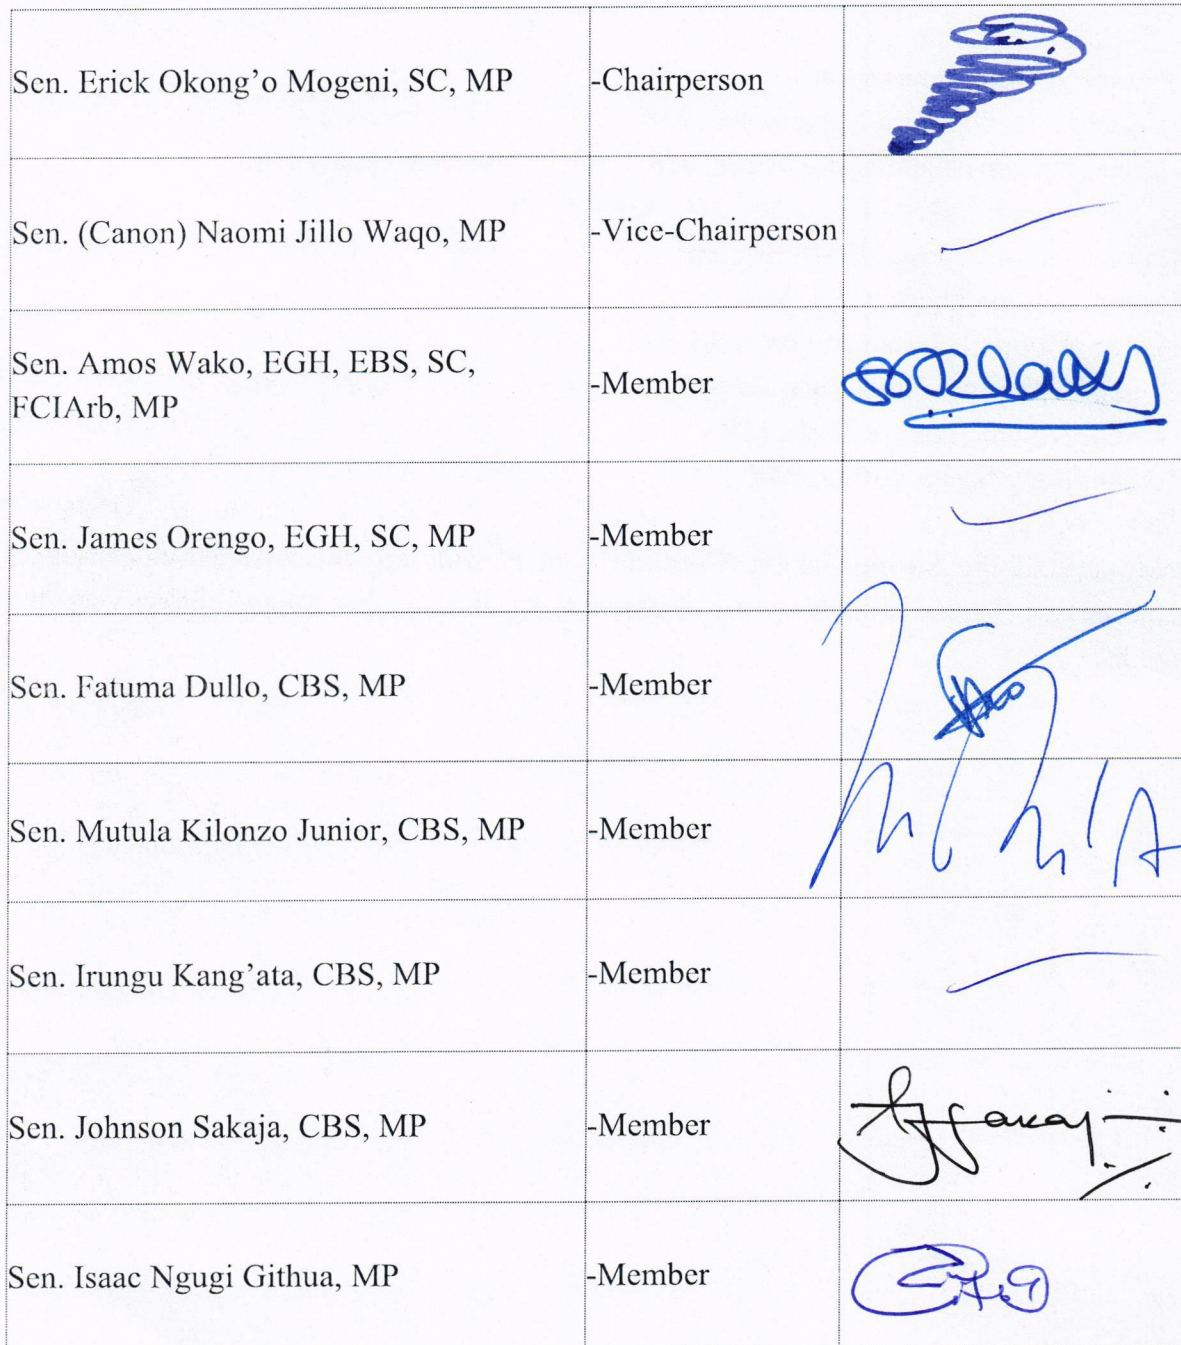 Sen. Erick Okong’o Mogeni, SC, MP -Chairperson
Sen. (Canon) Naomi Jillo Waqo, MP -Vice-Chairperson
Sen. Amos Wako, EGH, EBS, SC, -Member
FCIArb, MP
Sen. James Orengo, EGH, SC, MP -Member
Sen. Fatuma Dullo, CBS, MP -Member
Sen. Mutula Kilonzo Junior, CBS, MP -Member
Sen. Irungu Kang’ata, CBS, MP -Member
Sen. Johnson Sakaja, CBS, MP -Member
Sen. Isaac Ngugi Githua, MP -Member